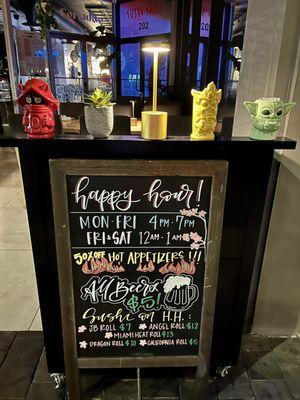 SUSHI SAKE
202
happy hour!
MON-FRI 4 PM-7 PM
FRI & SAT 12 AM-1 AM
50% OFF HOT APPETIZERS!!!
All Beerz
$5!
Sushi on H.H.:
JB ROLL $7 ANGEL ROLL $12
MIAMI HEAT ROLL $13
DRAGON ROLL $10 CALIFORNIA ROLL $5